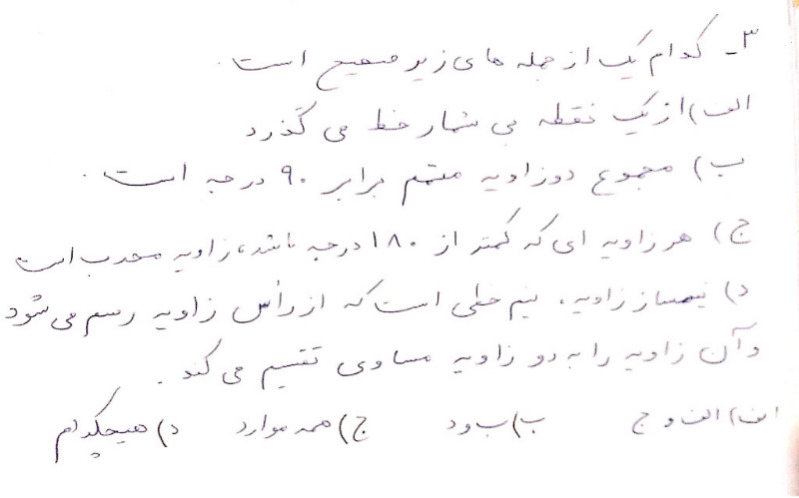 ۳- کدام یک از جمله های زیر صحیح است.
الف) از یک نقطه بی شمار خط می گذرد
ب) مجموع دو زاویه متمم برابر ۹۰ درجه است.
ج) هر زاویه ای که کمتر از ۱۸۰ درجه باشد، زاویه محدب است
د) نیمساز زاویه، نیم خطی است که از رأس زاویه رسم می شود
و آن زاویه را به دو زاویه مساوی تقسیم می کند.
الف) الف و ج ب) ب و د ج) همه موارد د) هیچکدام